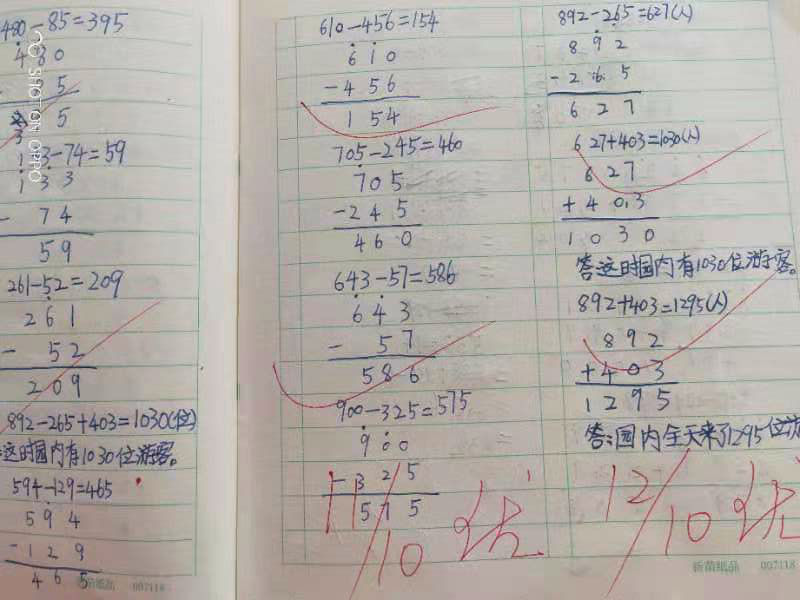 480-85=395
480
85
5
133-74=59
133
- 74
59
261-52=209
261
- 52
209
892-265+403=1030(位)
这时园内有1030位游客。
594-129=465
594
-129
465
新苗纸品 007118
610-456=154
610
-456
154
705-245=460
705
-245
460
643-57=586
643
- 57
586
900-325=575
900
-325
575
11/10 优
892-265=627(人)
892
-265
627
627+403=1030(人)
627
+403
1030
答:这时园内有1030位游客。
892+403=1295(人)
892
+403
1295
答:园内全天来了1295位游
12/10 优
新苗纸品 007118
SHOT ON OPPO